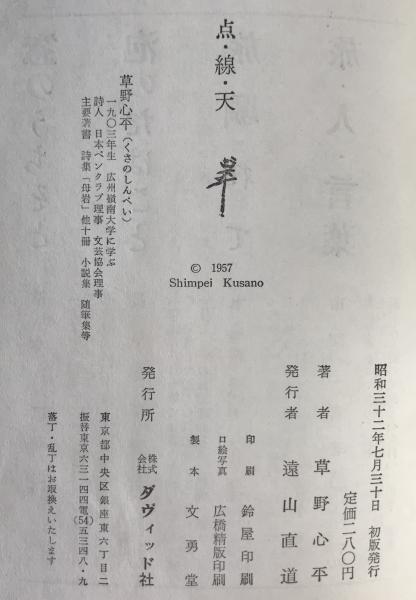 点・線・天
草野心平(くさのしんぺい)
一九〇三年生 広州嶺南大学に学ぶ
詩人 日本ペンクラブ理事 文芸協会理事
主要著書 詩集「母岩」他十冊 小説集 随筆集等
© 1957
Shimpei Kusano
昭和三十二年七月三十日 初版発行
定価二八〇円
著者 草野心平
発行者 遠山直道
印刷 鈴屋印刷
口絵写真 広橋精版印刷
製本 文勇堂
発行所 株式会社 ダヴィッド社
東京都中央区銀座東六丁目二
振替東京六三一四四電(54)五三四八・九
落丁・乱丁はお取換えいたします